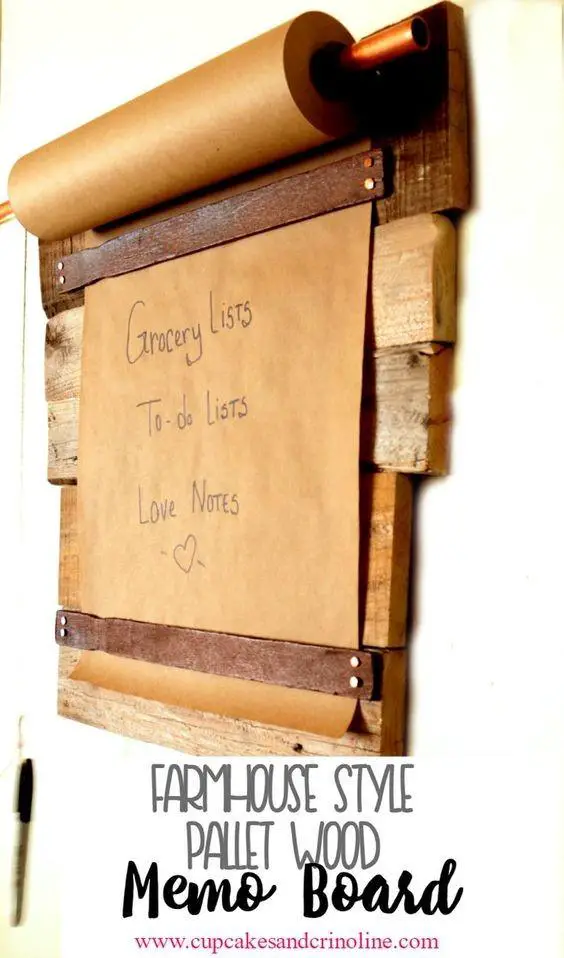 Grocery Lists
To-do Lists
Love Notes
FARMHOUSE STYLE
PALLET WOOD
Memo Board
www.cupcakesandcrinoline.com